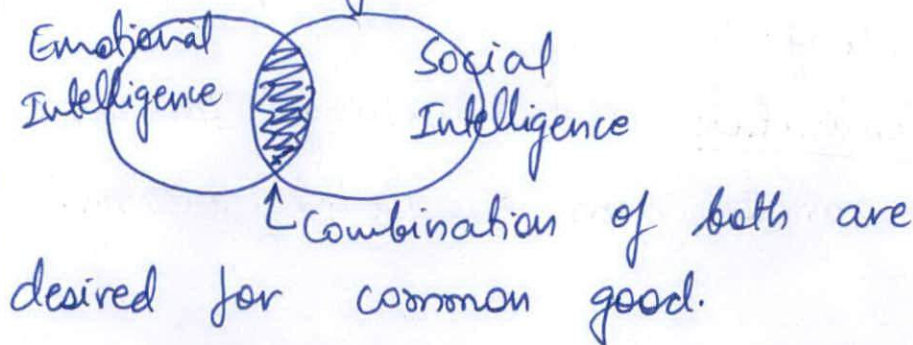 Emotional
Intelligence
Social
Intelligence
Combination of both are
desired for common good.